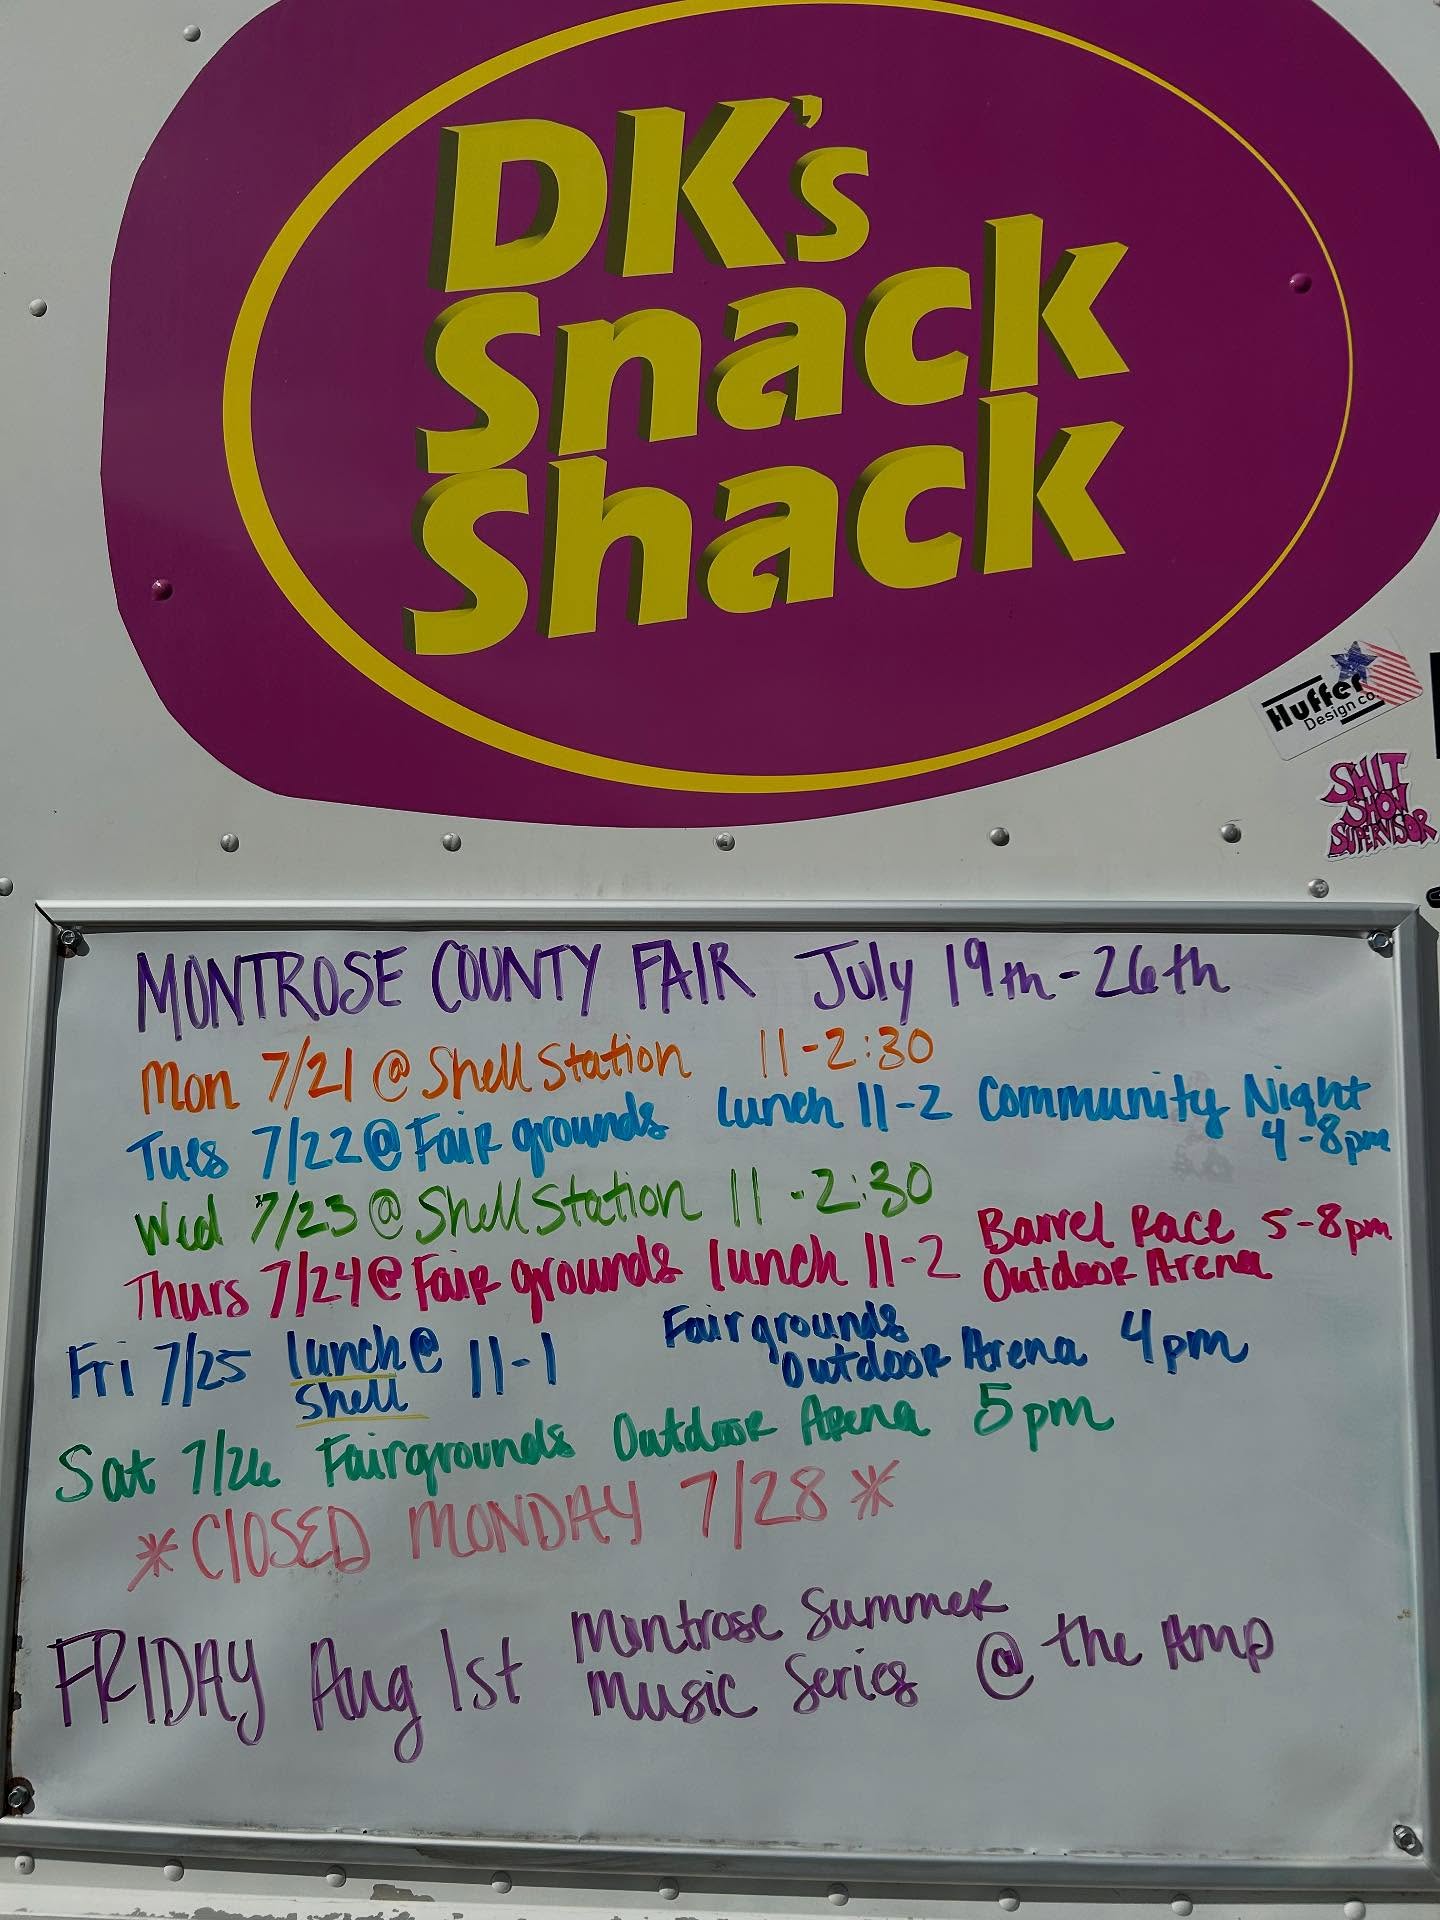 DK's
Snack
Shack
Huffer
Design co.
SHIT
SHOW
SUPERVISOR
MONTROSE COUNTY FAIR July 19th-26th
Mon 7/21 @ Shell Station 11-2:30
Tues 7/22 @ Fairgrounds Lunch 11-2 Community Night
4-8pm
Wed 7/23 @ Shell Station 11-2:30
Thurs 7/24 @ Fairgrounds lunch 11-2 Barrel Race 5-8pm
Outdoor Arena
Fri 7/25 lunch @ 11-1 Fairgrounds
Shell Outdoor Arena 4pm
Sat 7/26 Fairgrounds Outdoor Arena 5pm
*CLOSED MONDAY 7/28*
FRIDAY Aug 1st Montrose Summer
Music Series @ the Amp